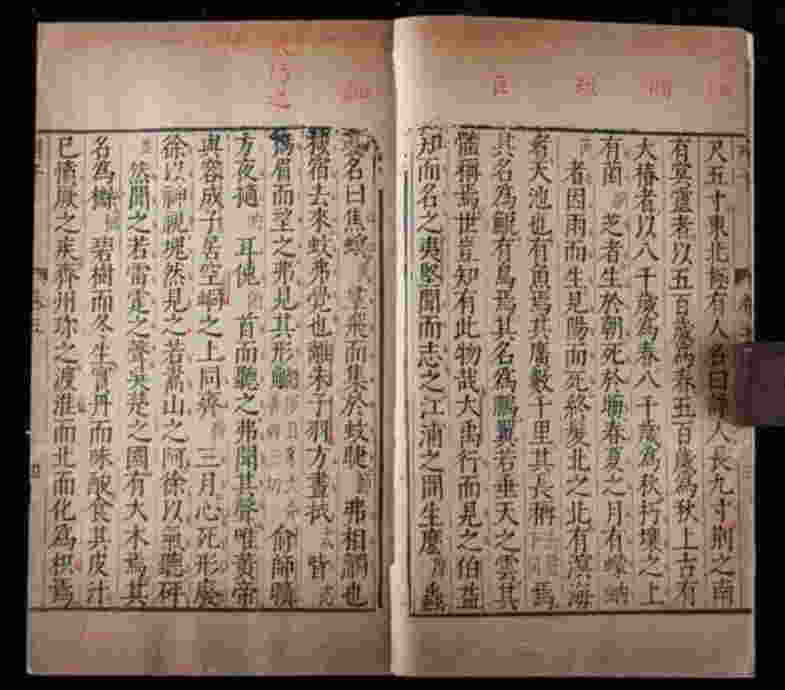 尺五寸東北極有人名曰諍人長九寸荆之南
有冥靈者以五百歲為春五百歲為秋上古有
大椿者以八千歲為春八千歲為秋朽壤之上
有菌 芝者生於朝死於晦春夏之月有蠓蚋
者因雨而生見陽而死終髮北之北有溟海
者天池也有魚焉其廣數千里其長稱 焉
其名為鯤有鳥焉其名為鵬翼若垂天之雲其
體稱焉世豈知有此物哉大禹行而見之伯益
知而名之夷堅聞而志之江浦之間生麽 蟲
其名曰焦螟 羣飛而集於蚊睫 弗相觸也
栖宿去來蚊弗覺也離朱子羽方晝拭 眥
揚眉而望之弗見其形䚦 俞師曠
方夜擿 耳俛 首而聽之弗聞其聲唯黄帝
與容成子居空峒之上同齋 三月心死形廢
徐以神視塊然見之若嵩山之阿徐以氣聽砰
然聞之若雷霆之聲吳楚之國有大木焉其
名為櫾 碧樹而冬生實丹而味酸食其皮汁
已憤厥之疾齊州珍之渡淮而北而化為枳焉